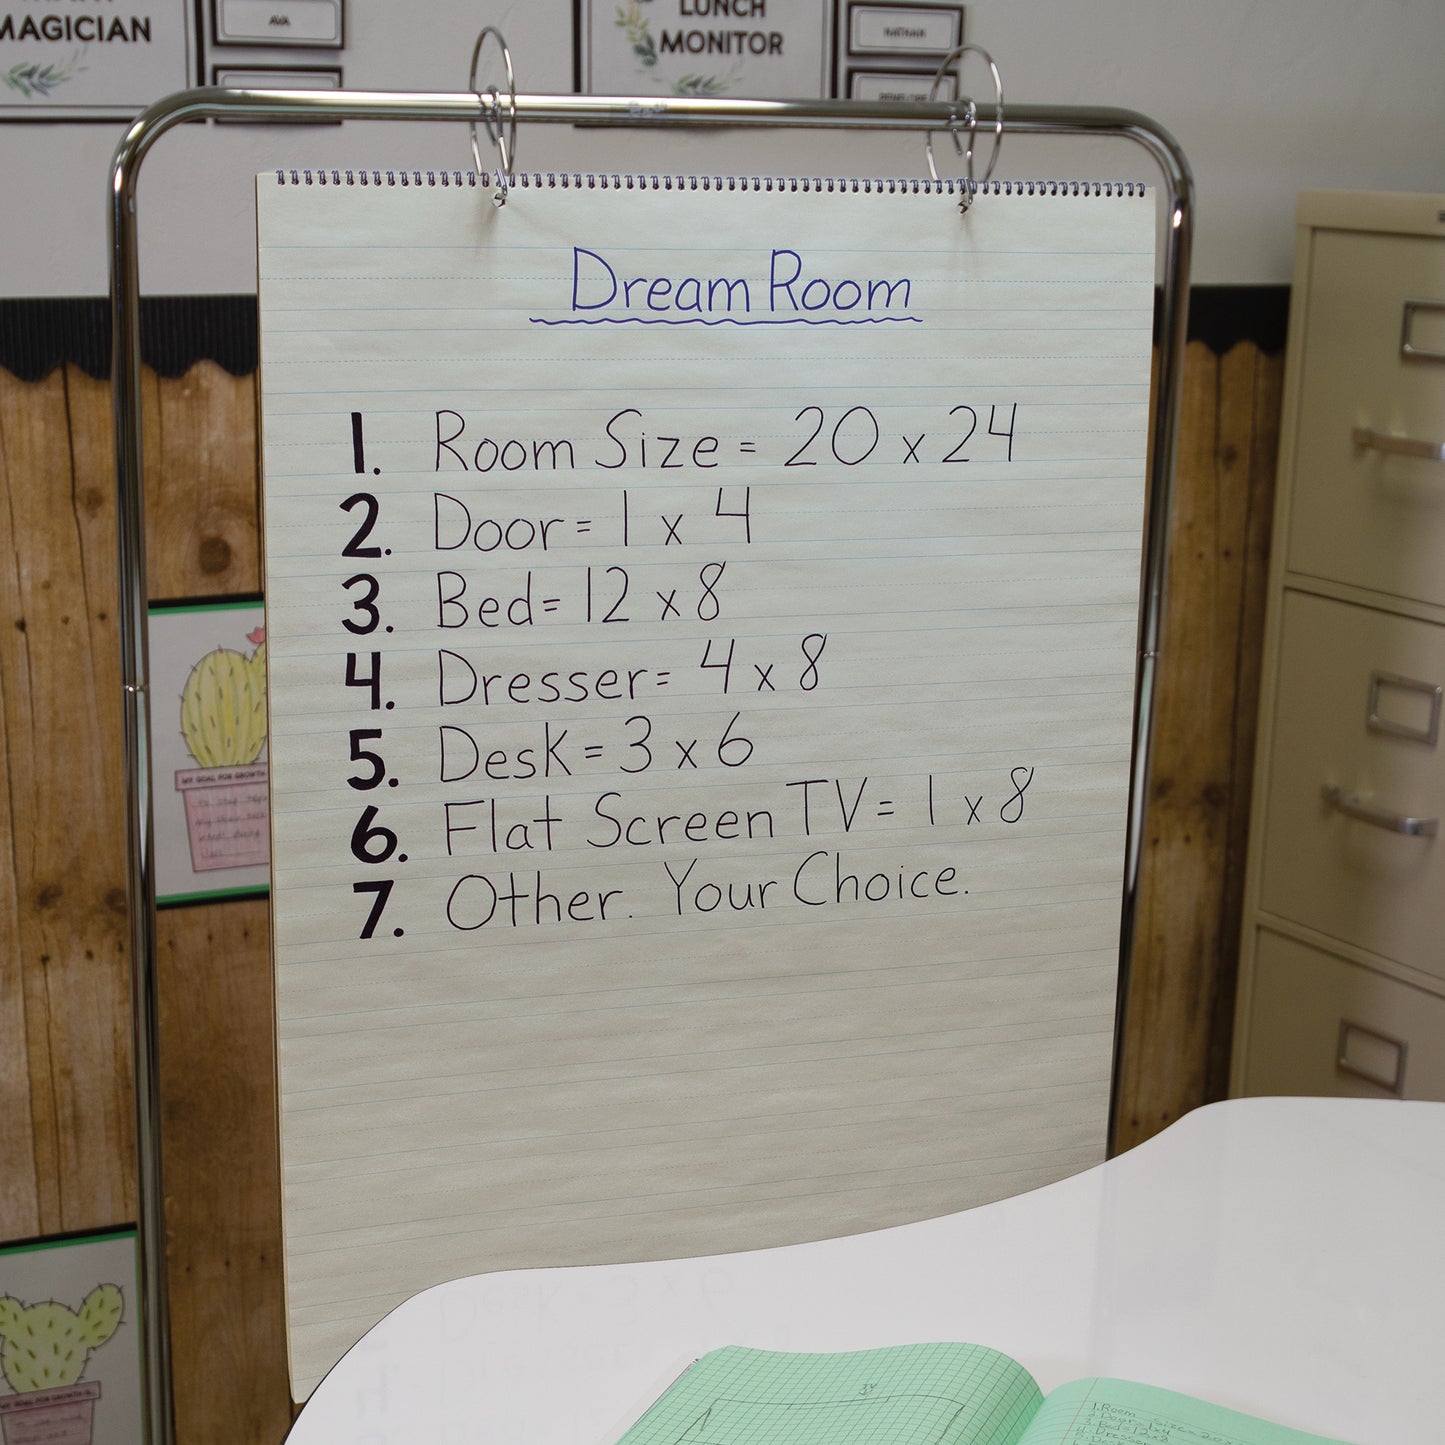 MAGICIAN
AVA
LUNCH
MONITOR
NATHAN
Dream Room
1. Room Size = 20 x 24
2. Door = 1 x 4
3. Bed = 12 x 8
4. Dresser = 4 x 8
5. Desk = 3 x 6
6. Flat Screen TV = 1 x 8
7. Other. Your Choice.
MY GOAL FOR GROWTH
MY GOAL FOR GROWTH IS
1. Room Size = 20 x
2. Door = 1x4
3. Bed = 12x8
4. Dresser
5. Desk